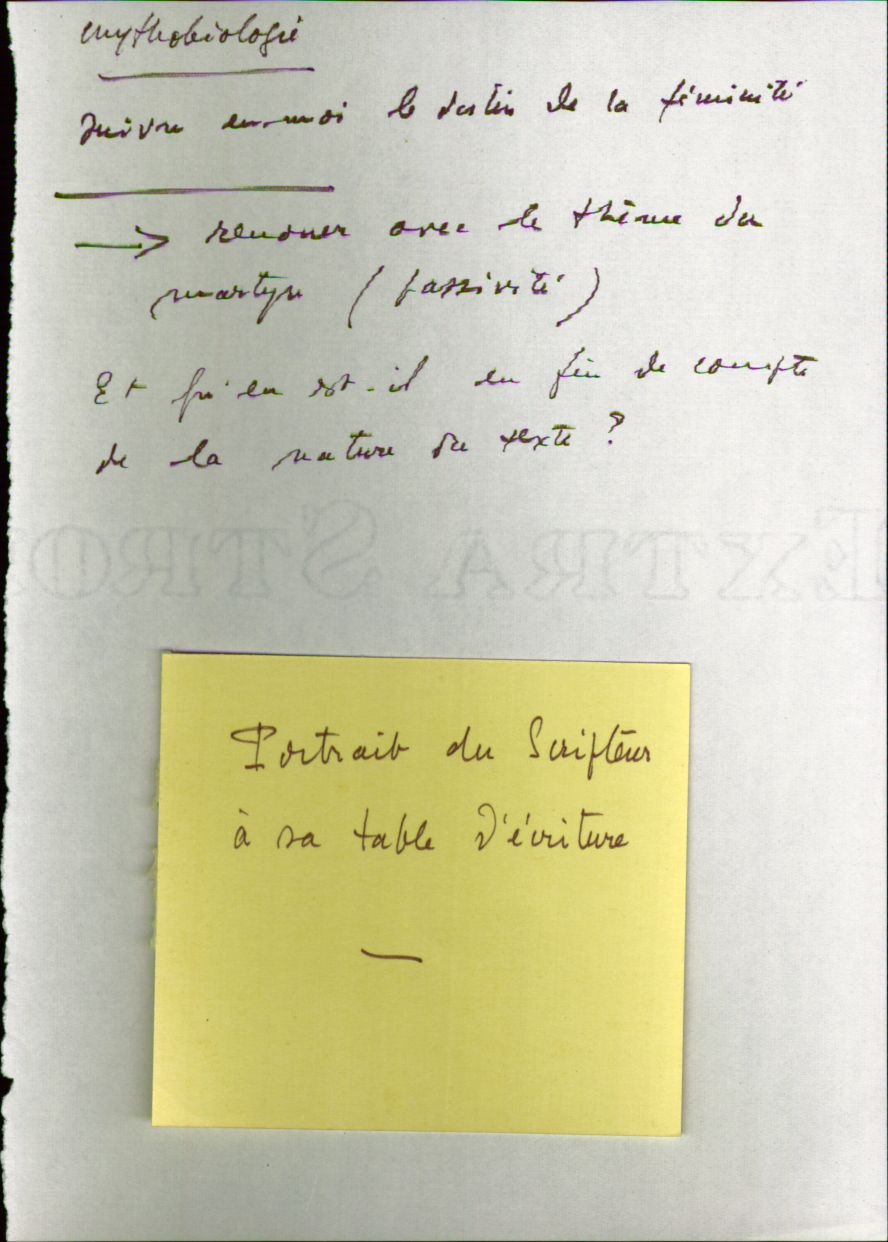 mythobiologie
Suivre en moi le destin de la féminité
→ renouer avec le thème du
martyre (passivité)
Et qu'en est-il en fin de compte
de la nature du texte ?
EXTRA STRO
Portrait du Scripteur
à sa table d'écriture